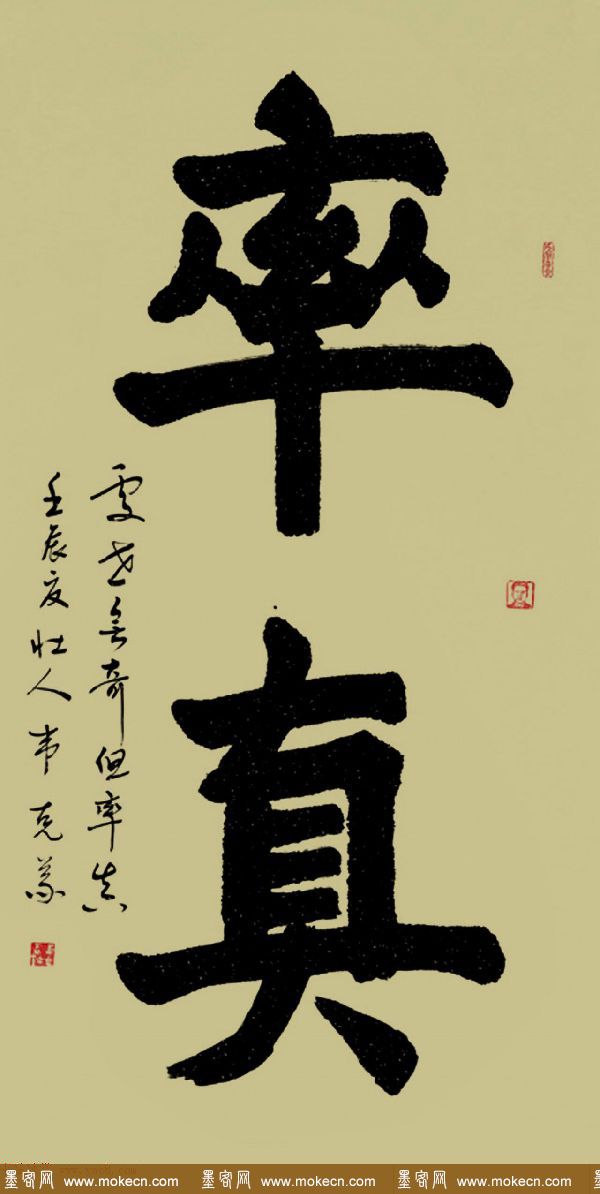 率真
处世无奇但率真
壬辰夏壮人韦克义
墨客网 www.mokecn.com 墨客网 www.mokecn.com 墨客网 www.mokecn.com